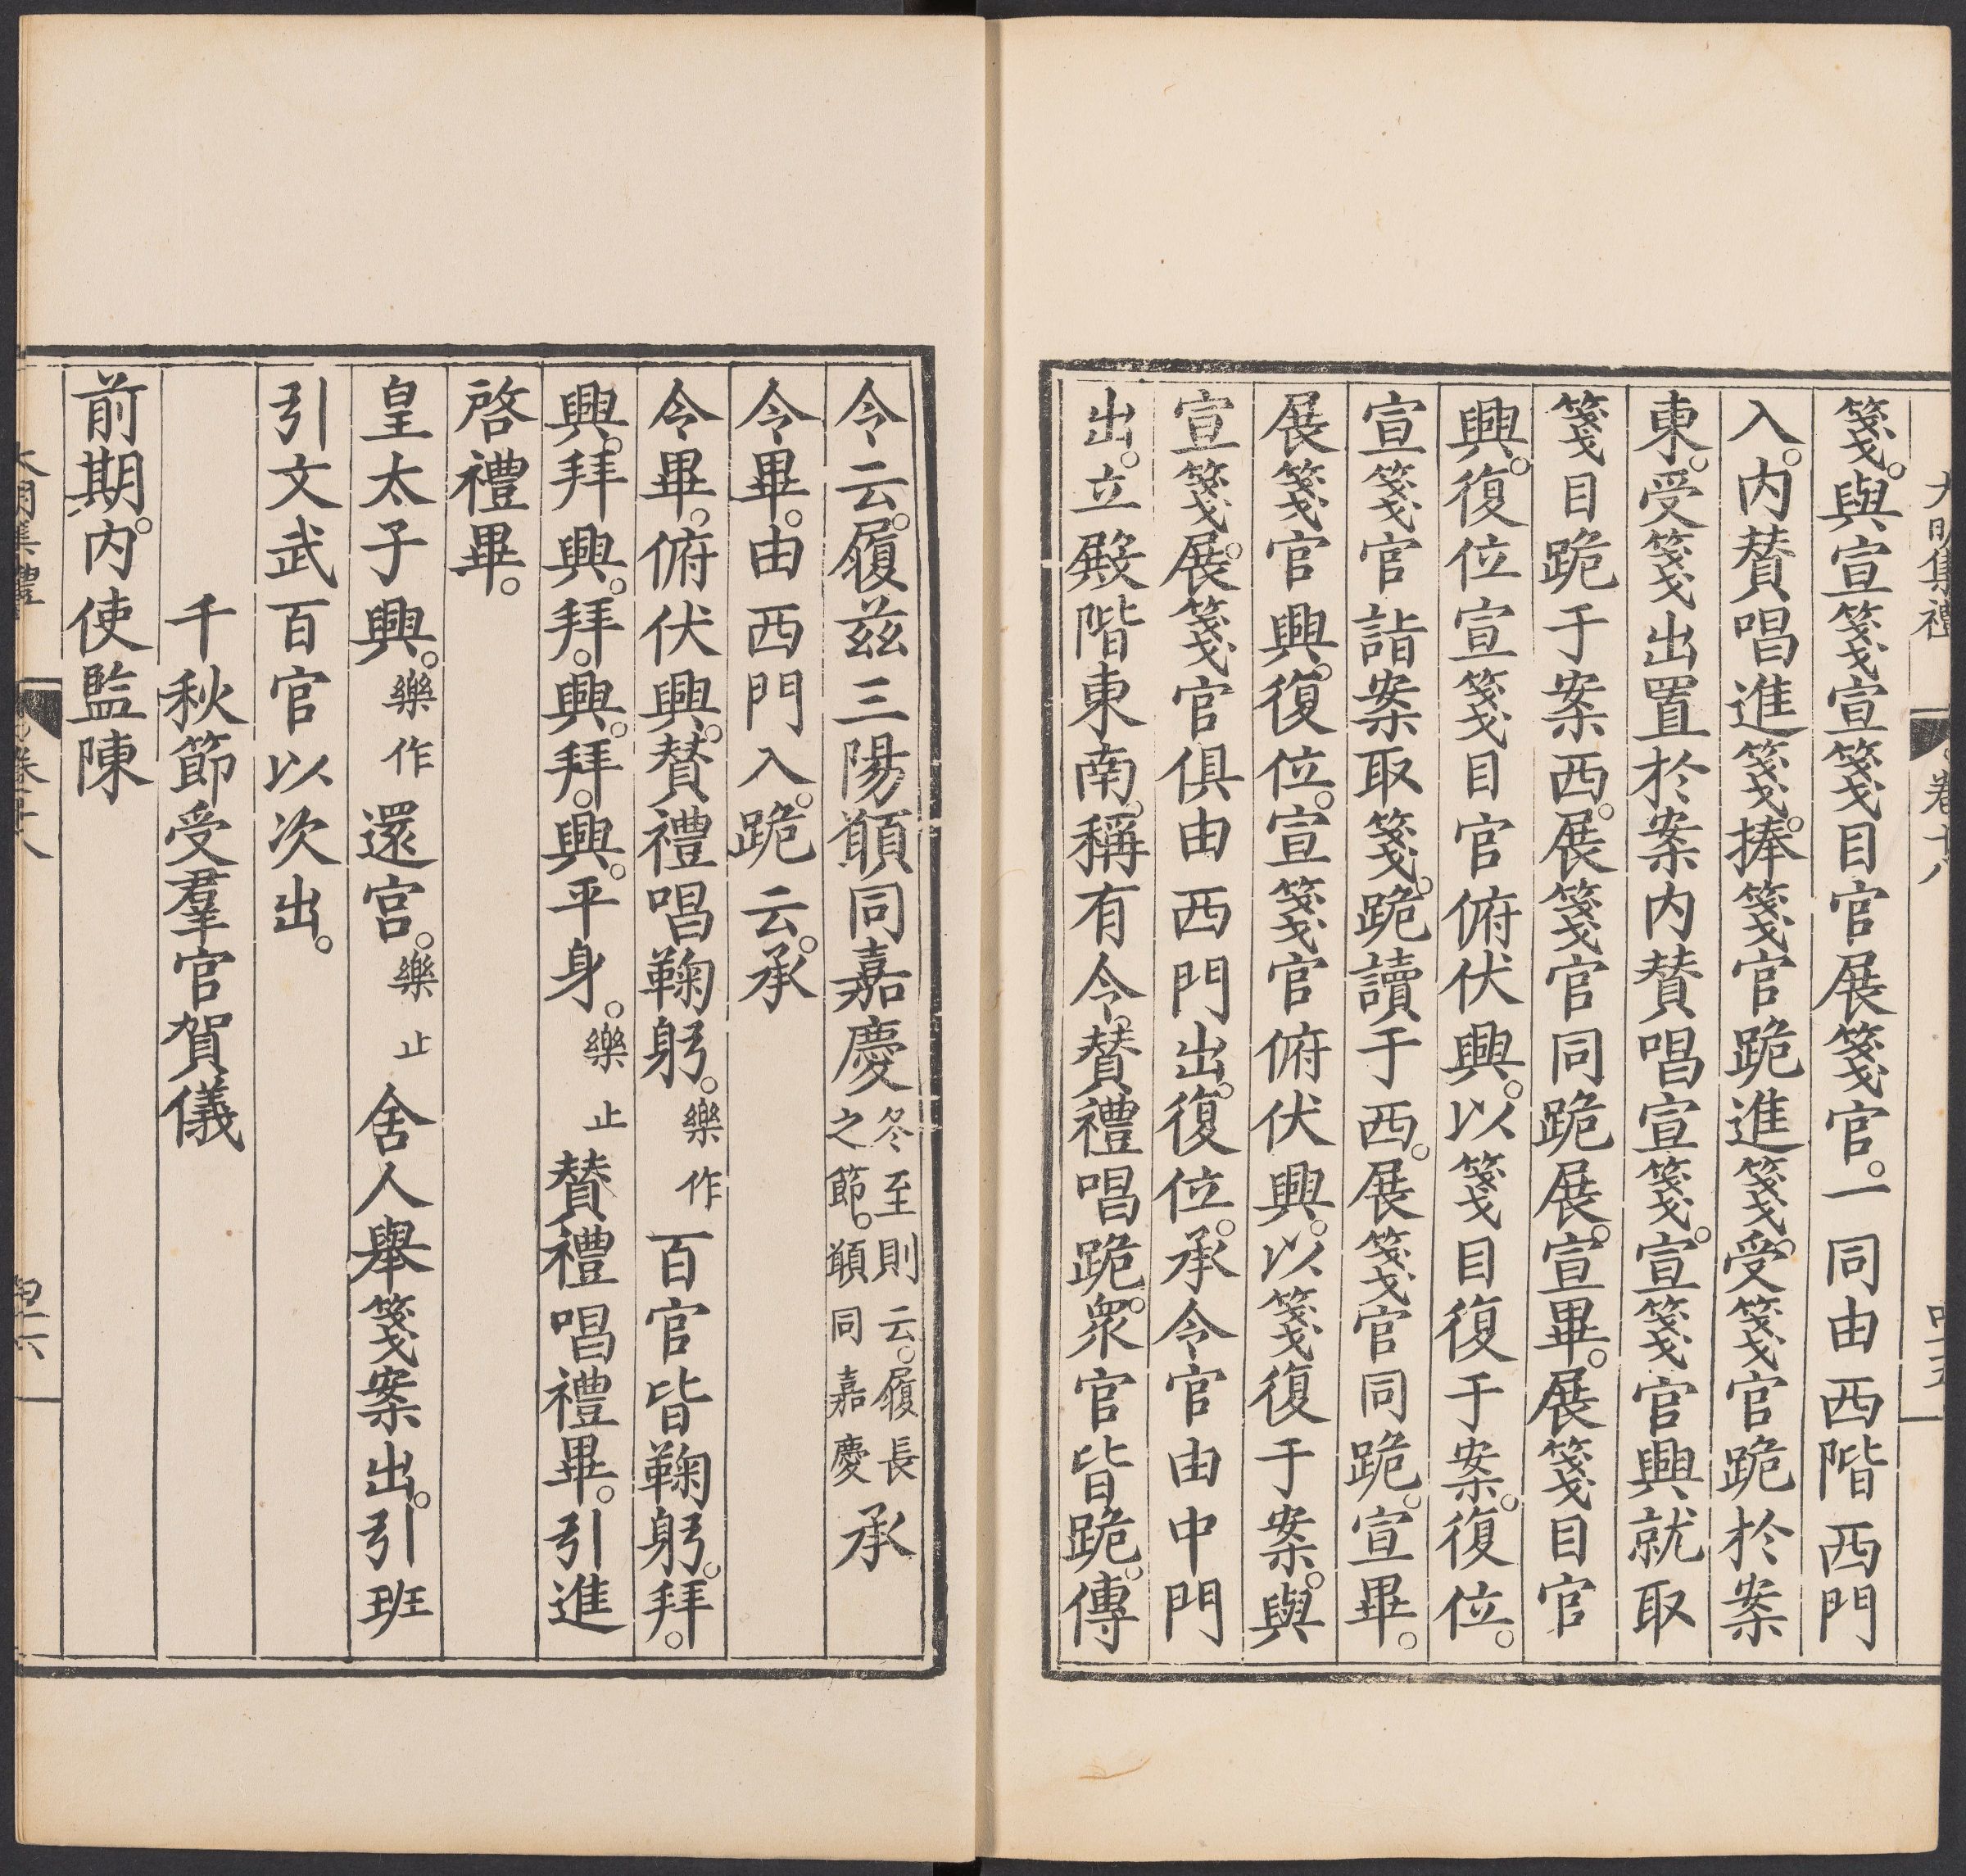 大明集禮
卷十八
四十五
箋。與宣箋宣箋目官展箋官。一同由西階西門
入。内賛唱進箋。捧箋官跪進箋。受箋官跪於案
東。受箋出置於案内賛唱宣箋。宣箋官興就取
箋目跪于案西。展箋官同跪展。宣畢。展箋目官
興。復位宣箋目官俯伏興。以箋目復于案。復位。
宣箋官詣案取箋。跪讀于西。展箋官同跪。宣畢。
展箋官興。復位。宣箋官俯伏興。以箋復于案。與
宣箋。展箋官俱由西門出。復位。承令官由中門
出。立殿階東南。稱有令。賛禮唱跪。衆官皆跪。傳
令云。履兹三陽顈同嘉慶冬至則云。履長
之節。顈同嘉慶承
令畢。由西門入。跪云。承
令畢。俯伏興。賛禮唱鞠躬。樂作百官皆鞠躬。拜。
興。拜興。拜。興。拜。興。平身。樂止賛禮唱禮畢。引進
啓禮畢。
皇太子興。樂作還宮。樂止舍人舉箋案出。引班
引文武百官以次出。
千秋節受羣官賀儀
前期。内使監陳
大明集禮
卷十八
四十六